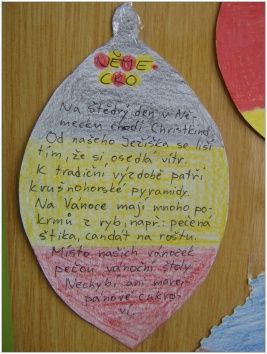 NĚME-
CKO
Na štědrý den v Ně-
mecku chodí Christkind.
Od našeho Ježíška se liší
tím, že si osedlá vítr.
K tradiční výzdobě patří
krušnohorské pyramidy.
Na Vánoce mají mnoho po-
krmů z ryb, např.: pečená
štika, candát na roštu.
Místo našich vánoček
pečou vánoční štoly
Nechybí ani marci-
pánové cukro-
ví,